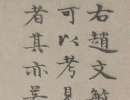 右趙文敏
可以考見
者其亦善